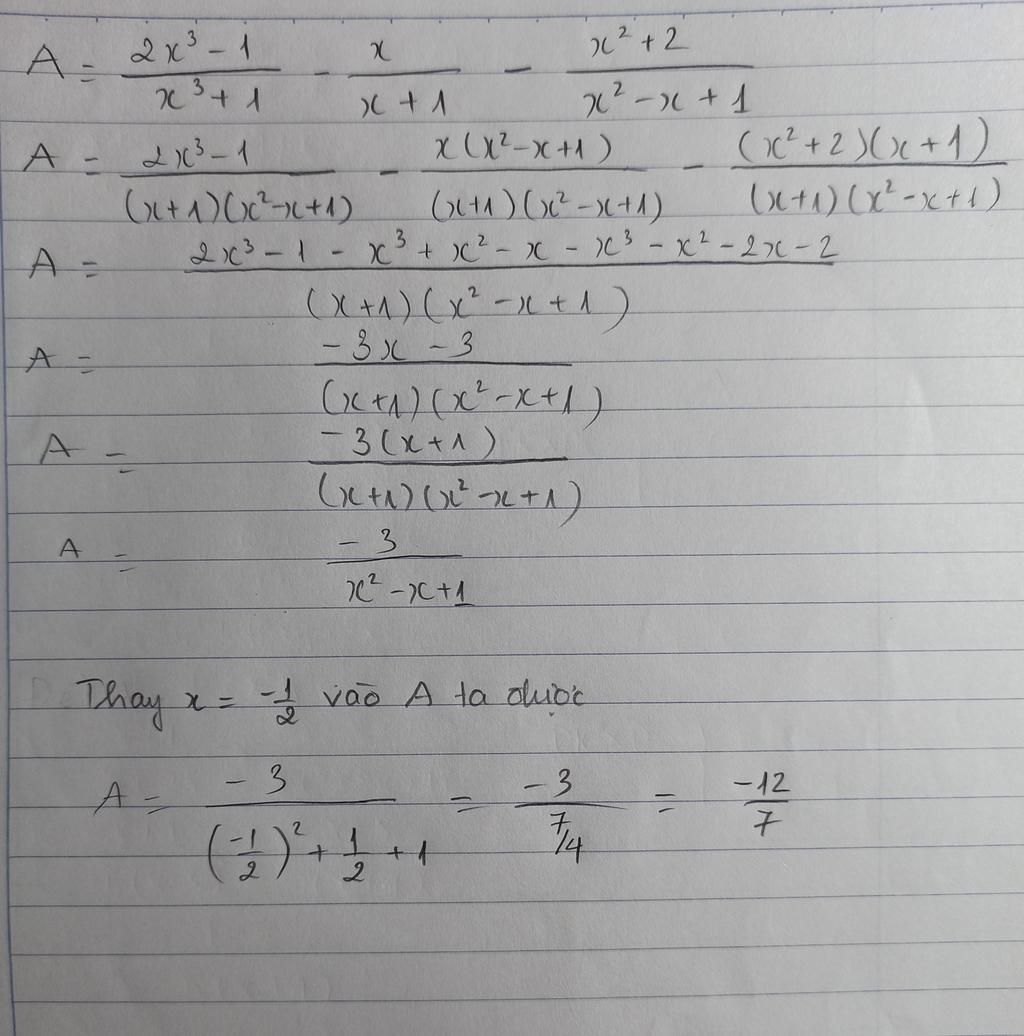 A = \frac{2x^3 - 1}{x^3 + 1} - \frac{x}{x + 1} - \frac{x^2 + 2}{x^2 - x + 1}
A = \frac{2x^3 - 1}{(x+1)(x^2 - x + 1)} - \frac{x(x^2 - x + 1)}{(x+1)(x^2 - x + 1)} - \frac{(x^2 + 2)(x + 1)}{(x+1)(x^2 - x + 1)}
A = \frac{2x^3 - 1 - x^3 + x^2 - x - x^3 - x^2 - 2x - 2}{(x+1)(x^2 - x + 1)}
A = \frac{-3x - 3}{(x+1)(x^2 - x + 1)}
A = \frac{-3(x+1)}{(x+1)(x^2 - x + 1)}
A = \frac{-3}{x^2 - x + 1}
Thay x = -\frac{1}{2} vào A ta được
A = \frac{-3}{(\frac{-1}{2})^2 + \frac{1}{2} + 1} = \frac{-3}{7/4} = \frac{-12}{7}